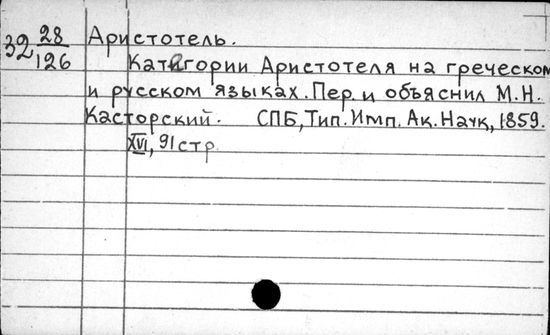 32 28/126 Аристотель.
Категории Аристотеля на греческом
и русском языках. Пер. и объяснил М.Н.
Касторский. СПБ, Тип. Имп. Ак. Наук, 1859.
XVI, 91 стр